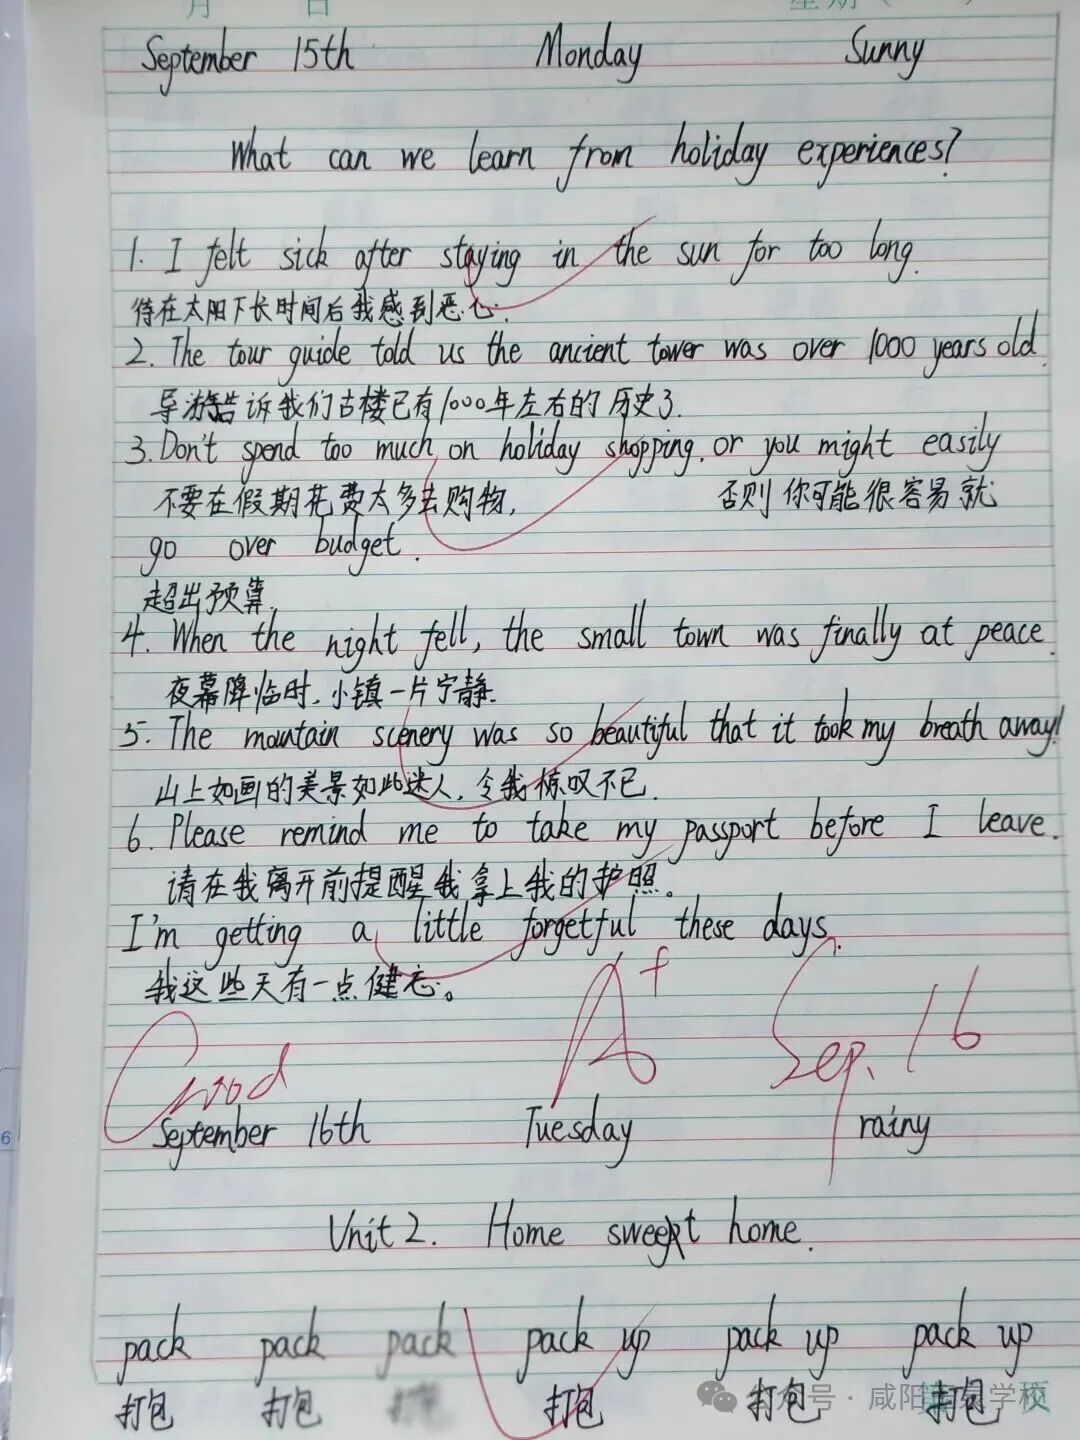 月 日 星期(
September 15th Monday Sunny
What can we learn from holiday experiences?
1. I felt sick after staying in the sun for too long.
待在太阳下长时间后我感到恶心.
2. The tour guide told us the ancient tower was over 1000 years old.
导游告诉我们古楼已有1000年左右的历史了.
3. Don't spend too much on holiday shopping, or you might easily
不要在假期花费太多去购物, 否则你可能很容易就
go over budget.
超出预算.
4. When the night fell, the small town was finally at peace.
夜幕降临时,小镇一片宁静.
5. The mountain scenery was so beautiful that it took my breath away!
山上如画的美景如此迷人,令我惊叹不已.
6. Please remind me to take my passport before I leave.
请在我离开前提醒我拿上我的护照。
I'm getting a little forgetful these days.
我这些天有一点健忘。
Good A+ Sep. 16
September 16th Tuesday rainy
Unit 2. Home sweet home.
pack pack pack pack up pack up pack up
打包 打包 打包 打包 打包
公众号·咸阳 学校